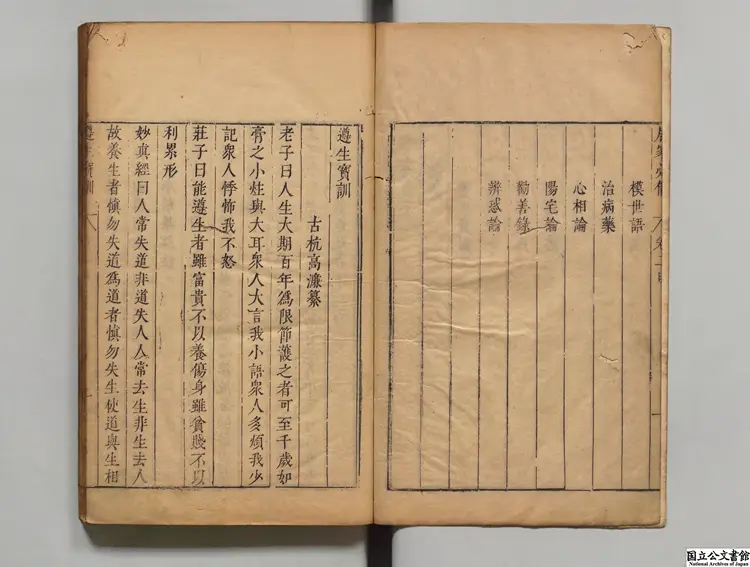 模世語
治病藥
心相論
陽宅論
勸善錄
辨惑論
遵生寶訓
古杭高濂纂
老子曰人生大期百年爲限節護之者可至千歲如
膏之小炷與大耳衆人大言我小語衆人多煩我少
記衆人悸怖我不怒
莊子曰能遵生者雖富貴不以養傷身雖貧賤不以
利累形
妙真經曰人常失道非道失人人常去生非生去人
故養生者慎勿失道爲道者慎勿失生使道與生相
遵生寶訓
国立公文書館
National Archives of Japan